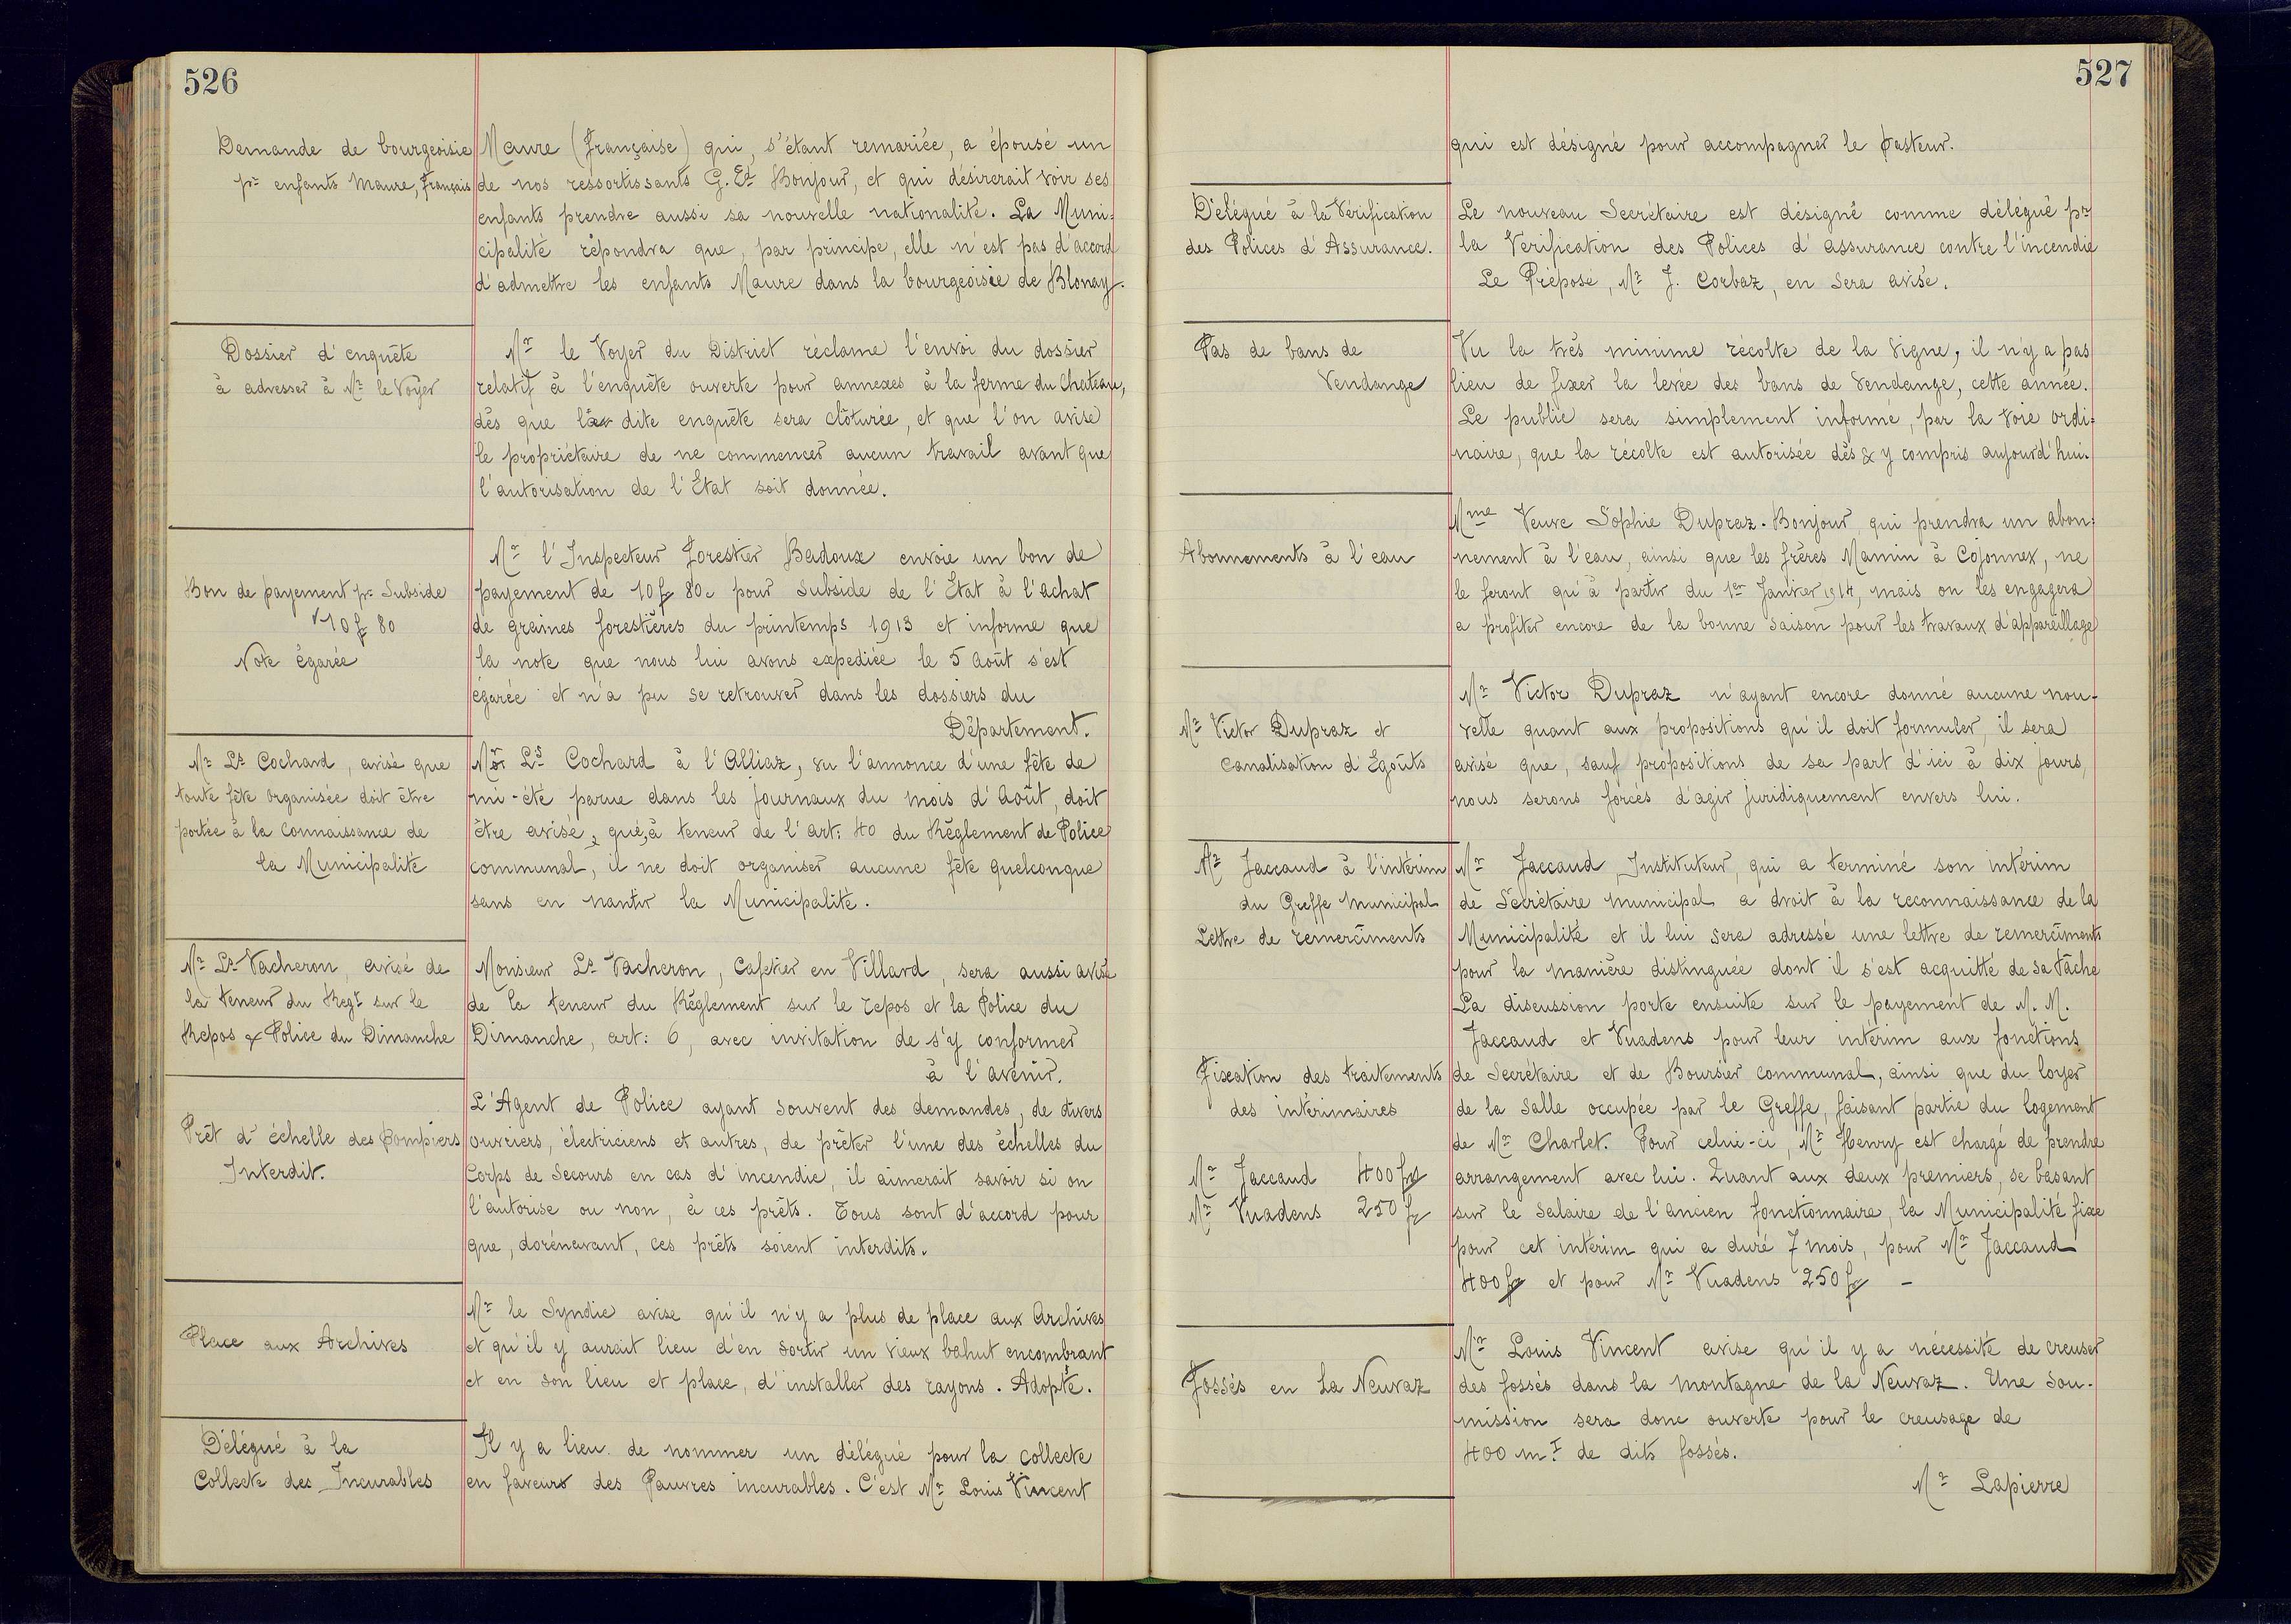 526
Demande de bourgeoisie
pr enfants Maure, français
Maure (Française) qui, s'étant remariée, a épousé un
de nos ressortissants G. Ed Bonjour, et qui désirerait voir ses
enfants prendre aussi sa nouvelle nationalité. La Muni:
cipalité répondra que, par principe, elle n'est pas d'accord
d'admettre les enfants Maure dans la bourgeoisie de Blonay.
Dossier d'enquête
à adresser à Mr le Voyer
Mr le Voyer du District réclame l'envoi du dossier
relatif à l'enquête ouverte pour annexes à la ferme du Chateau,
dès que la dite enquête sera clôturée, et que l'on avise
le propriétaire de ne commencer aucun travail avant que
l'autorisation de l'Etat soit donnée.
Bon de payement pr Subside
10 f 80
Note égarée
Mr l'Inspecteur Forestier Badoux envoie un bon de
payement de 10 f 80 c pour Subside de l'Etat à l'achat
de graines forestières du printemps 1913 et informe que
la note que nous lui avons expediée le 5 Août s'est
égarée et n'a pu se retrouver dans les dossiers du
Département.
Mr Ls Cochard, avisé que
toute fête organisée doit être
portée à la connaissance de
la Municipalité
Mr Ls Cochard à l'Alliaz, vu l'annonce d'une fête de
mi-été parue dans les journaux du mois d'Août, doit
être avisé, que, à teneur de l'art: 40 du Règlement de Police
communal, il ne doit organiser aucune fête quelconque
sans en nantir la Municipalité.
Mr Ls Vacheron, avisé de
la teneur du Regt sur le
Repos & Police du Dimanche
Monsieur Ls Vacheron, Cafetier en Villard, sera aussi avisé
de la teneur du Règlement sur le repos et la Police du
Dimanche, art: 6, avec invitation de s'y conformer
à l'avenir.
Prêt d'échelle des Pompiers
Interdit.
L'Agent de Police ayant souvent des demandes, de divers
ouvriers, électriciens et autres, de prêter l'une des échelles du
Corps de Secours en cas d'incendie, il aimerait savoir si on
l'autorise ou non, à ces prêts. Tous sont d'accord pour
que, dorénavant, ces prêts soient interdits.
Place aux Archives
Mr le Syndic avise qu'il n'y a plus de place aux Archives
et qu'il y aurait lieu d'en sortir un vieux bahut encombrant
et en son lieu et place, d'installer des rayons. Adopté.
Délégué à la
Collecte des Incurables
Il y a lieu de nommer un délégué pour la collecte
en faveurs des Pauvres incurables. C'est Mr Louis Vincent
527
qui est désigné pour accompagner le Pasteur.
Délégué à la Vérification
des Polices d'Assurance.
Le nouveau Secrétaire est désigné comme délégué pr
la Verification des Polices d'assurance contre l'incendie
Le Préposé, Mr J. Corbaz, en sera avisé.
Pas de bans de
Vendange
Vu la très minime récolte de la vigne, il n'y a pas
lieu de fixer la levée des bans de Vendange, cette année.
Le public sera simplement informé, par la voie ordi:
naire, que la récolte est autorisée dès & y compris aujourd'hui.
Abonnements à l'eau
Mme Veuve Sophie Dupraz-Bonjour qui prendra un abon:
nement à l'eau, ainsi que les frères Mamin à Cojonnex, ne
le feront qu'à partir du 1er Janvier 1914, mais on les engagera
a profiter encore de la bonne saison pour les travaux d'appareillage
Mr Victor Dupraz et
Canalisation d'Egoûts
Mr Victor Dupraz n'ayant encore donné aucune nou-
velle quant aux propositions qu'il doit formuler, il sera
avisé que, sauf propositions de sa part d'ici à dix jours,
nous serons forcés d'agir juridiquement envers lui.
Mr Jaccaud à l'intérim
du Greffe Municipal
Lettre de remercîments
Mr Jaccaud, Instituteur, qui a terminé son intérim
de Secrétaire municipal a droit à la reconnaissance de la
Municipalité et il lui sera adressé une lettre de remercîments
pour la manière distinguée dont il s'est acquitté de sa tâche
La discussion porte ensuite sur le payement de M. M.
Jaccaud et Vuadens pour leur intérim aux fonctions
Fixation des traitements
des intérimaires
Mr Jaccaud 400 fr
Mr Vuadens 250 fr
de Secrétaire et de Boursier communal, ainsi que du loyer
de la salle occupée par le Greffe, faisant partie du logement
de Mr Charlet. Pour celui-ci, Mr Henry est chargé de prendre
arrangement avec lui. Quant aux deux premiers, se basant
sur le salaire de l'ancien fonctionnaire, la Municipalité fixe
pour cet intérim qui a duré 7 mois, pour Mr Jaccaud
400 fr et pour Mr Vuadens 250 fr -
Fossés en La Neuvaz
Mr Louis Vincent avise qu'il y a nécessité de creuser
des fossés dans la montagne de la Neuvaz. Une sou-
mission sera donc ouverte pour le creusage de
400 m. de dits fossés.
Mr Lapierre